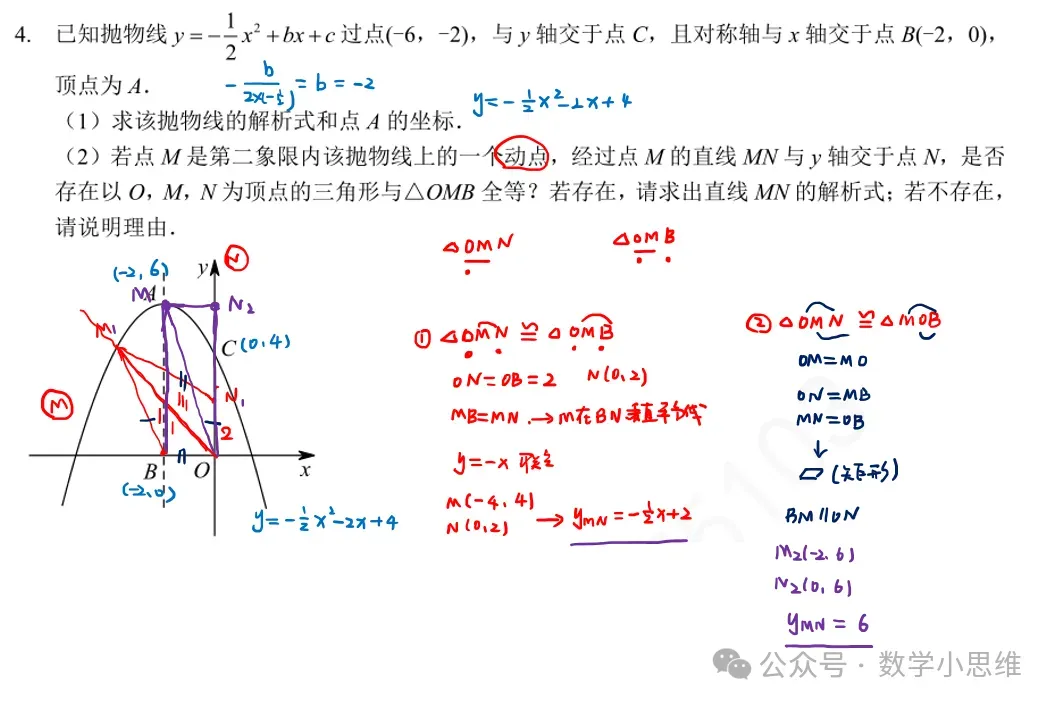 4. 已知抛物线 y=-\frac{1}{2}x²+bx+c 过点(-6，-2)，与 y 轴交于点 C，且对称轴与 x 轴交于点 B(-2，0)，
顶点为 A．
-\frac{b}{2×(-\frac{1}{2})}=b=-2
y=-\frac{1}{2}x²-2x+4
（1）求该抛物线的解析式和点 A 的坐标．
（2）若点 M 是第二象限内该抛物线上的一个动点，经过点 M 的直线 MN 与 y 轴交于点 N，是否
存在以 O，M，N 为顶点的三角形与△OMB 全等？若存在，请求出直线 MN 的解析式；若不存在，
请说明理由．
△OMN
△OMB
(-2,6)
y
N
A
N2
M1
C(0,4)
M
N1
2
B
O
x
(-2,0)
y=-\frac{1}{2}x²-2x+4
① △OMN≌△OMB
ON=OB=2 N(0,2)
MB=MN.→M在BN垂直平分线
y=-x 联立
M(-4,4)
N(0,2)
→ yMN=-\frac{1}{2}x+2
② △OMN≌△MOB
OM=MO
ON=MB
MN=OB
↓
▱(矩形)
BM∥ON
M2(-2,6)
N2(0,6)
yMN=6
公众号·数学小思维